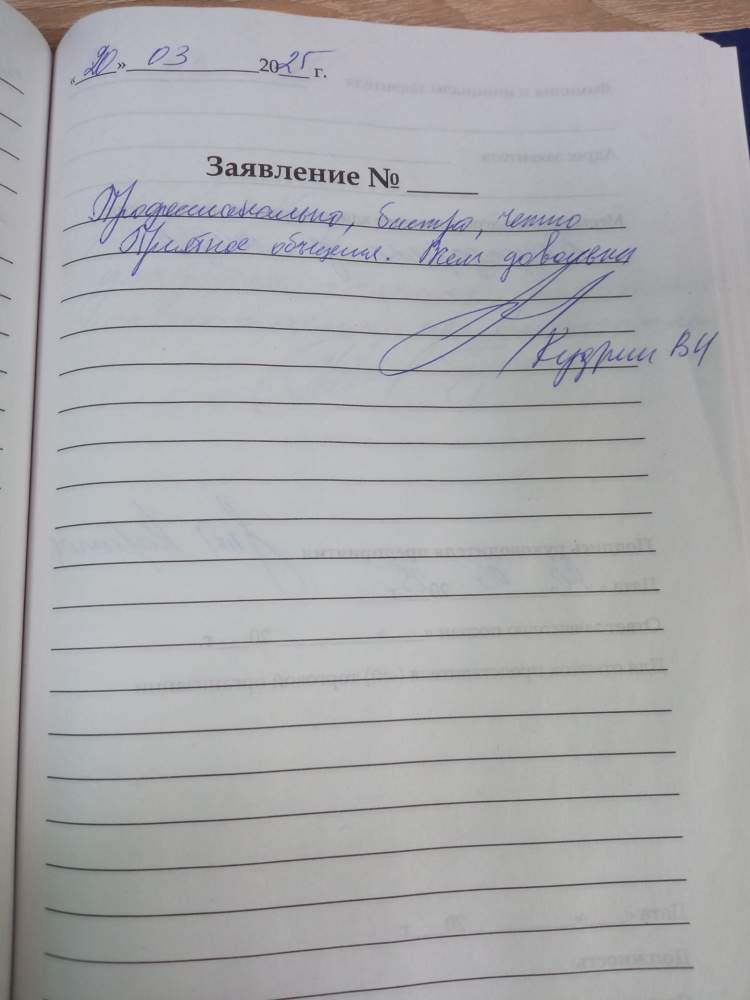 «20» 03 2025 г.
Заявление № ____
Профессионально, быстро, четко
Приятное общение. Всем довольны
Кудрин ВИ